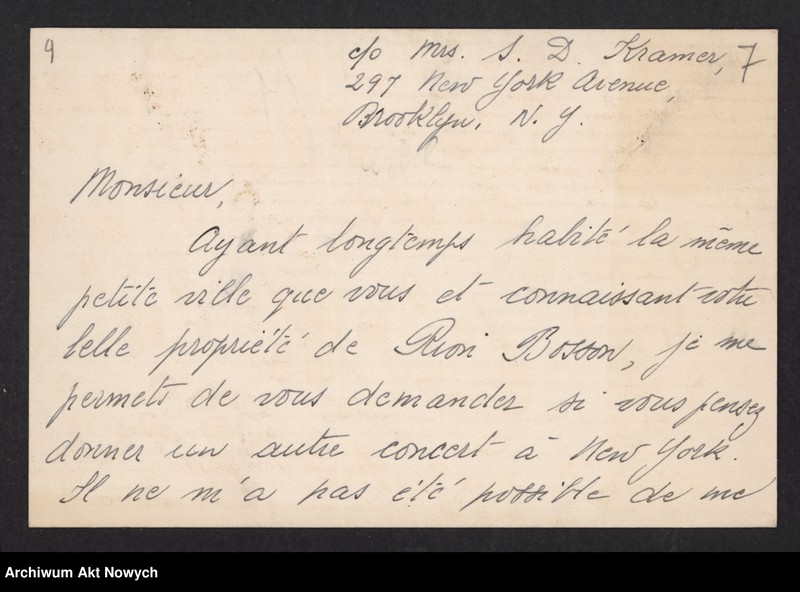 9
c/o Mrs. S. D. Kramer, 7
297 New York Avenue,
Brooklyn, N. Y.
Monsieur,
Ayant longtemps habité la même
petite ville que vous et connaissant votre
belle propriété de Rion Bosson, je me
permets de vous demander si vous pensez
donner un autre concert à New York.
Il ne m'a pas été possible de me
Archiwum Akt Nowych